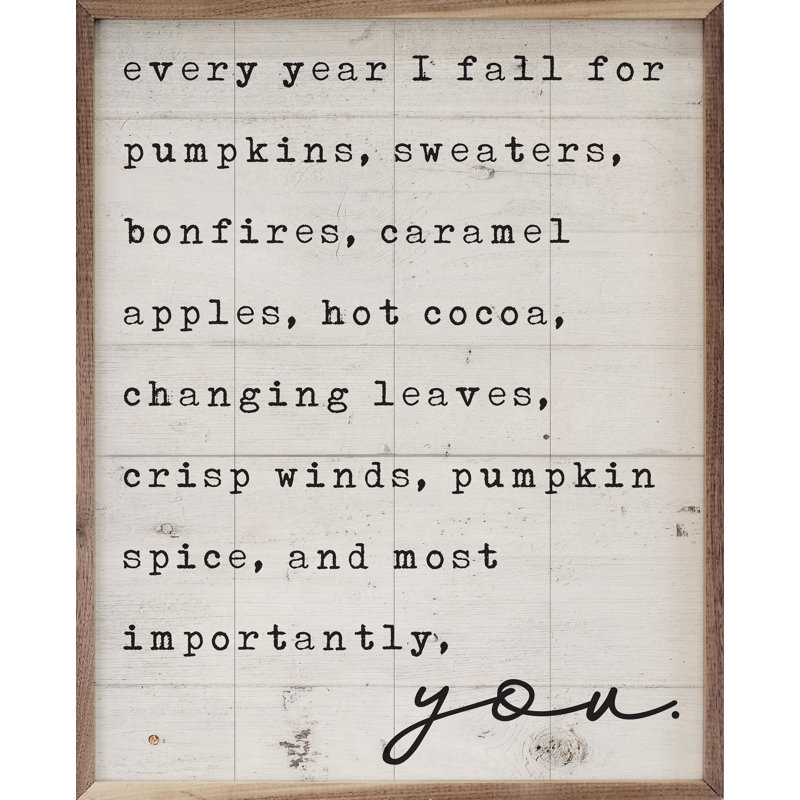 every year I fall for
pumpkins, sweaters,
bonfires, caramel
apples, hot cocoa,
changing leaves,
crisp winds, pumpkin
spice, and most
importantly,
you.